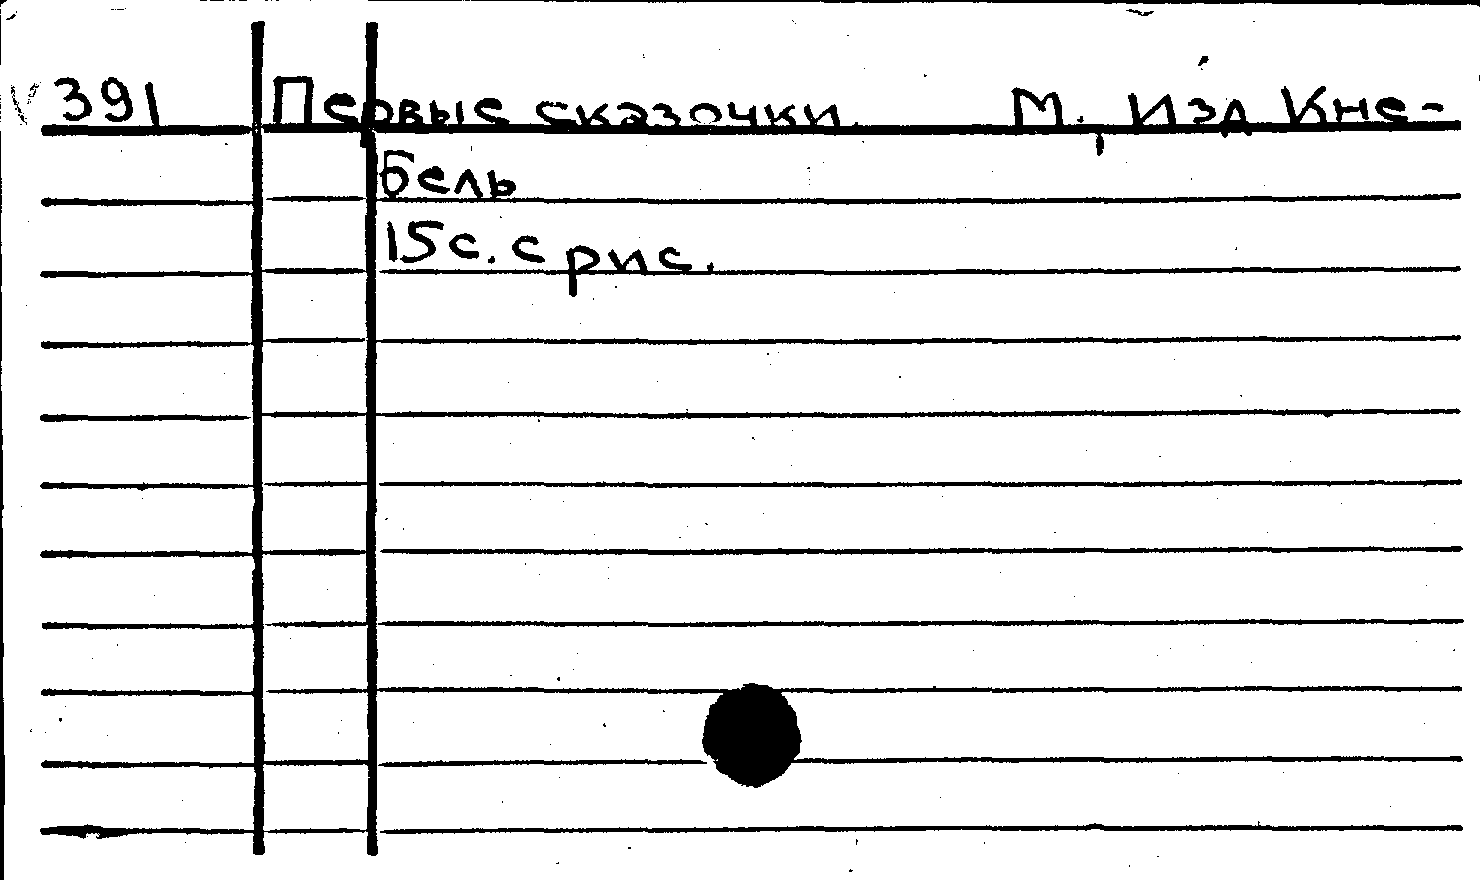 391 Первые сказочки. М., Изд Кне-
бель
15 с. с рис.